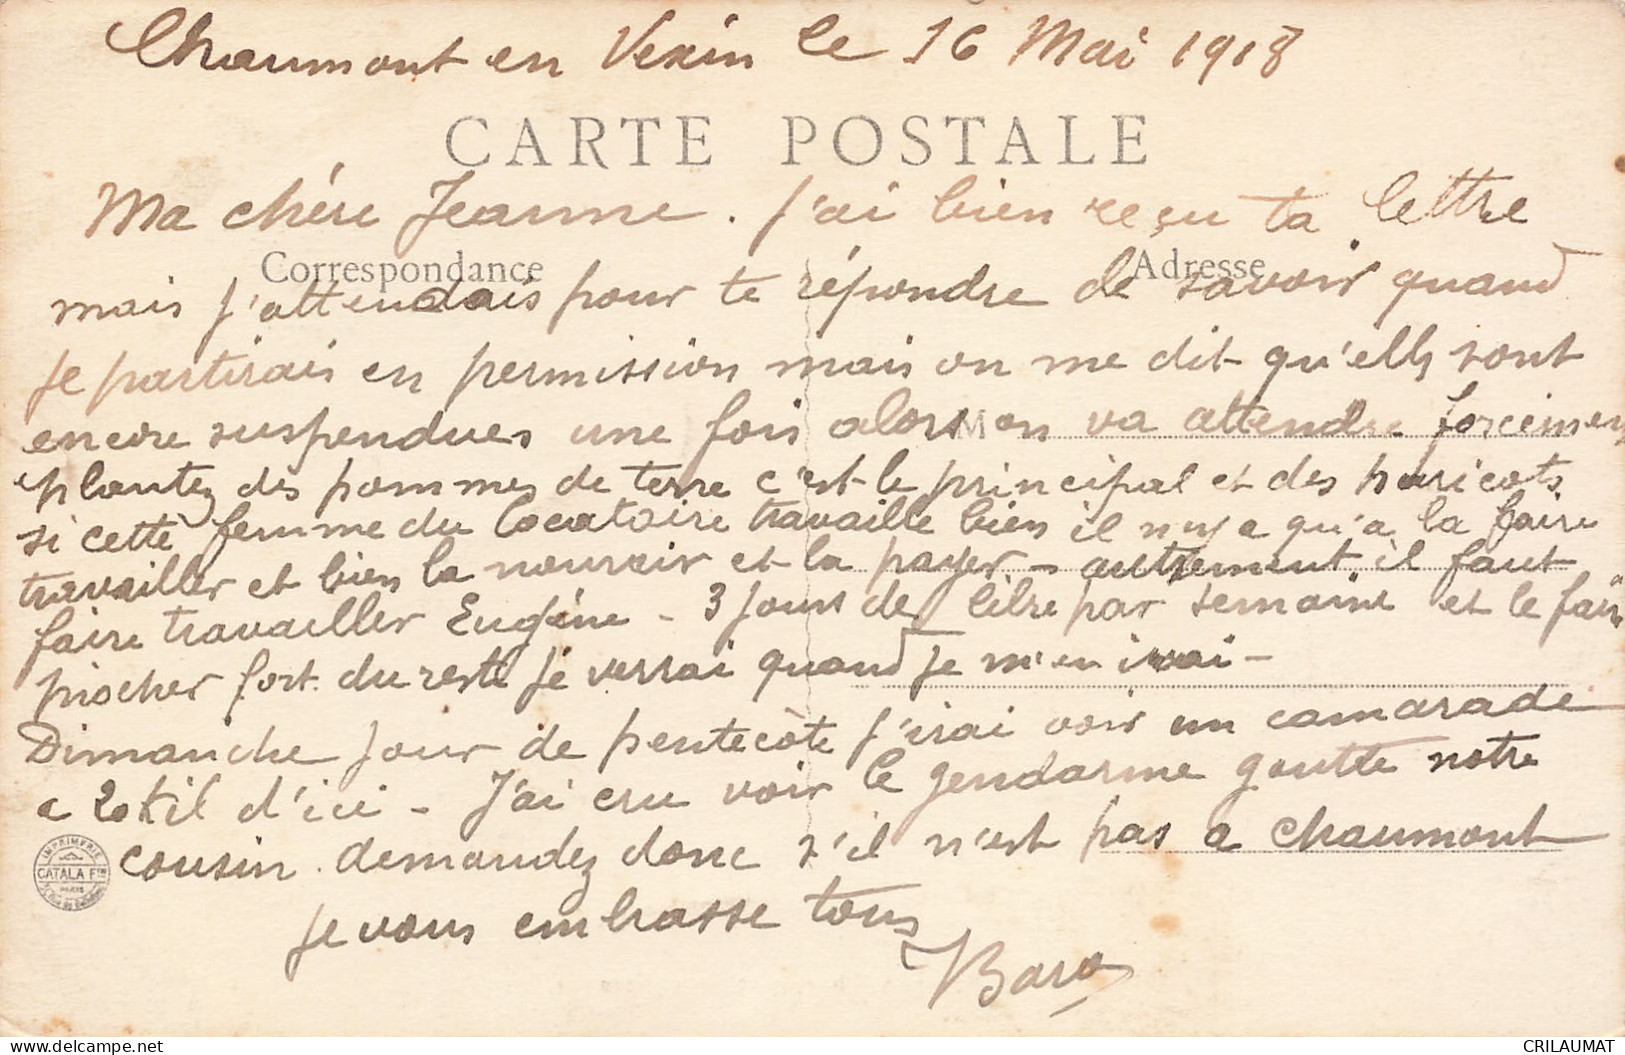 Chaumont en Vexin le 16 Mai 1918
CARTE POSTALE
Ma chére Jeanne. J'ai bien reçu ta lettre
Correspondance
Adresse
mais j'attendais pour te répondre de savoir quand
je partirais en permission mais on me dit qu'elles sont
encore suspendues une fois alors on va attendre forcémen
plantez des pommes de terre c'est le principal et des haricots
si cette femme du locataire travaille bien il n'y a qu'a la faire
travailler et bien la nourrir et la payer - autrement il faut
faire travailler Eugéne - 3 jours de libre par semaine et le faire
piocher fort. du reste je verrai quand je m'en irai -
Dimanche jour de pentecôte j'irai voir un camarade
a 20 kil d'ici - J'ai cru voir le gendarme goutte notre
cousin. demandez donc s'il n'est pas a Chaumont
Je vous embrasse tous
IMPRIMERIE
CATALA Fres
PARIS
delcampe.net
CRILAUMAT